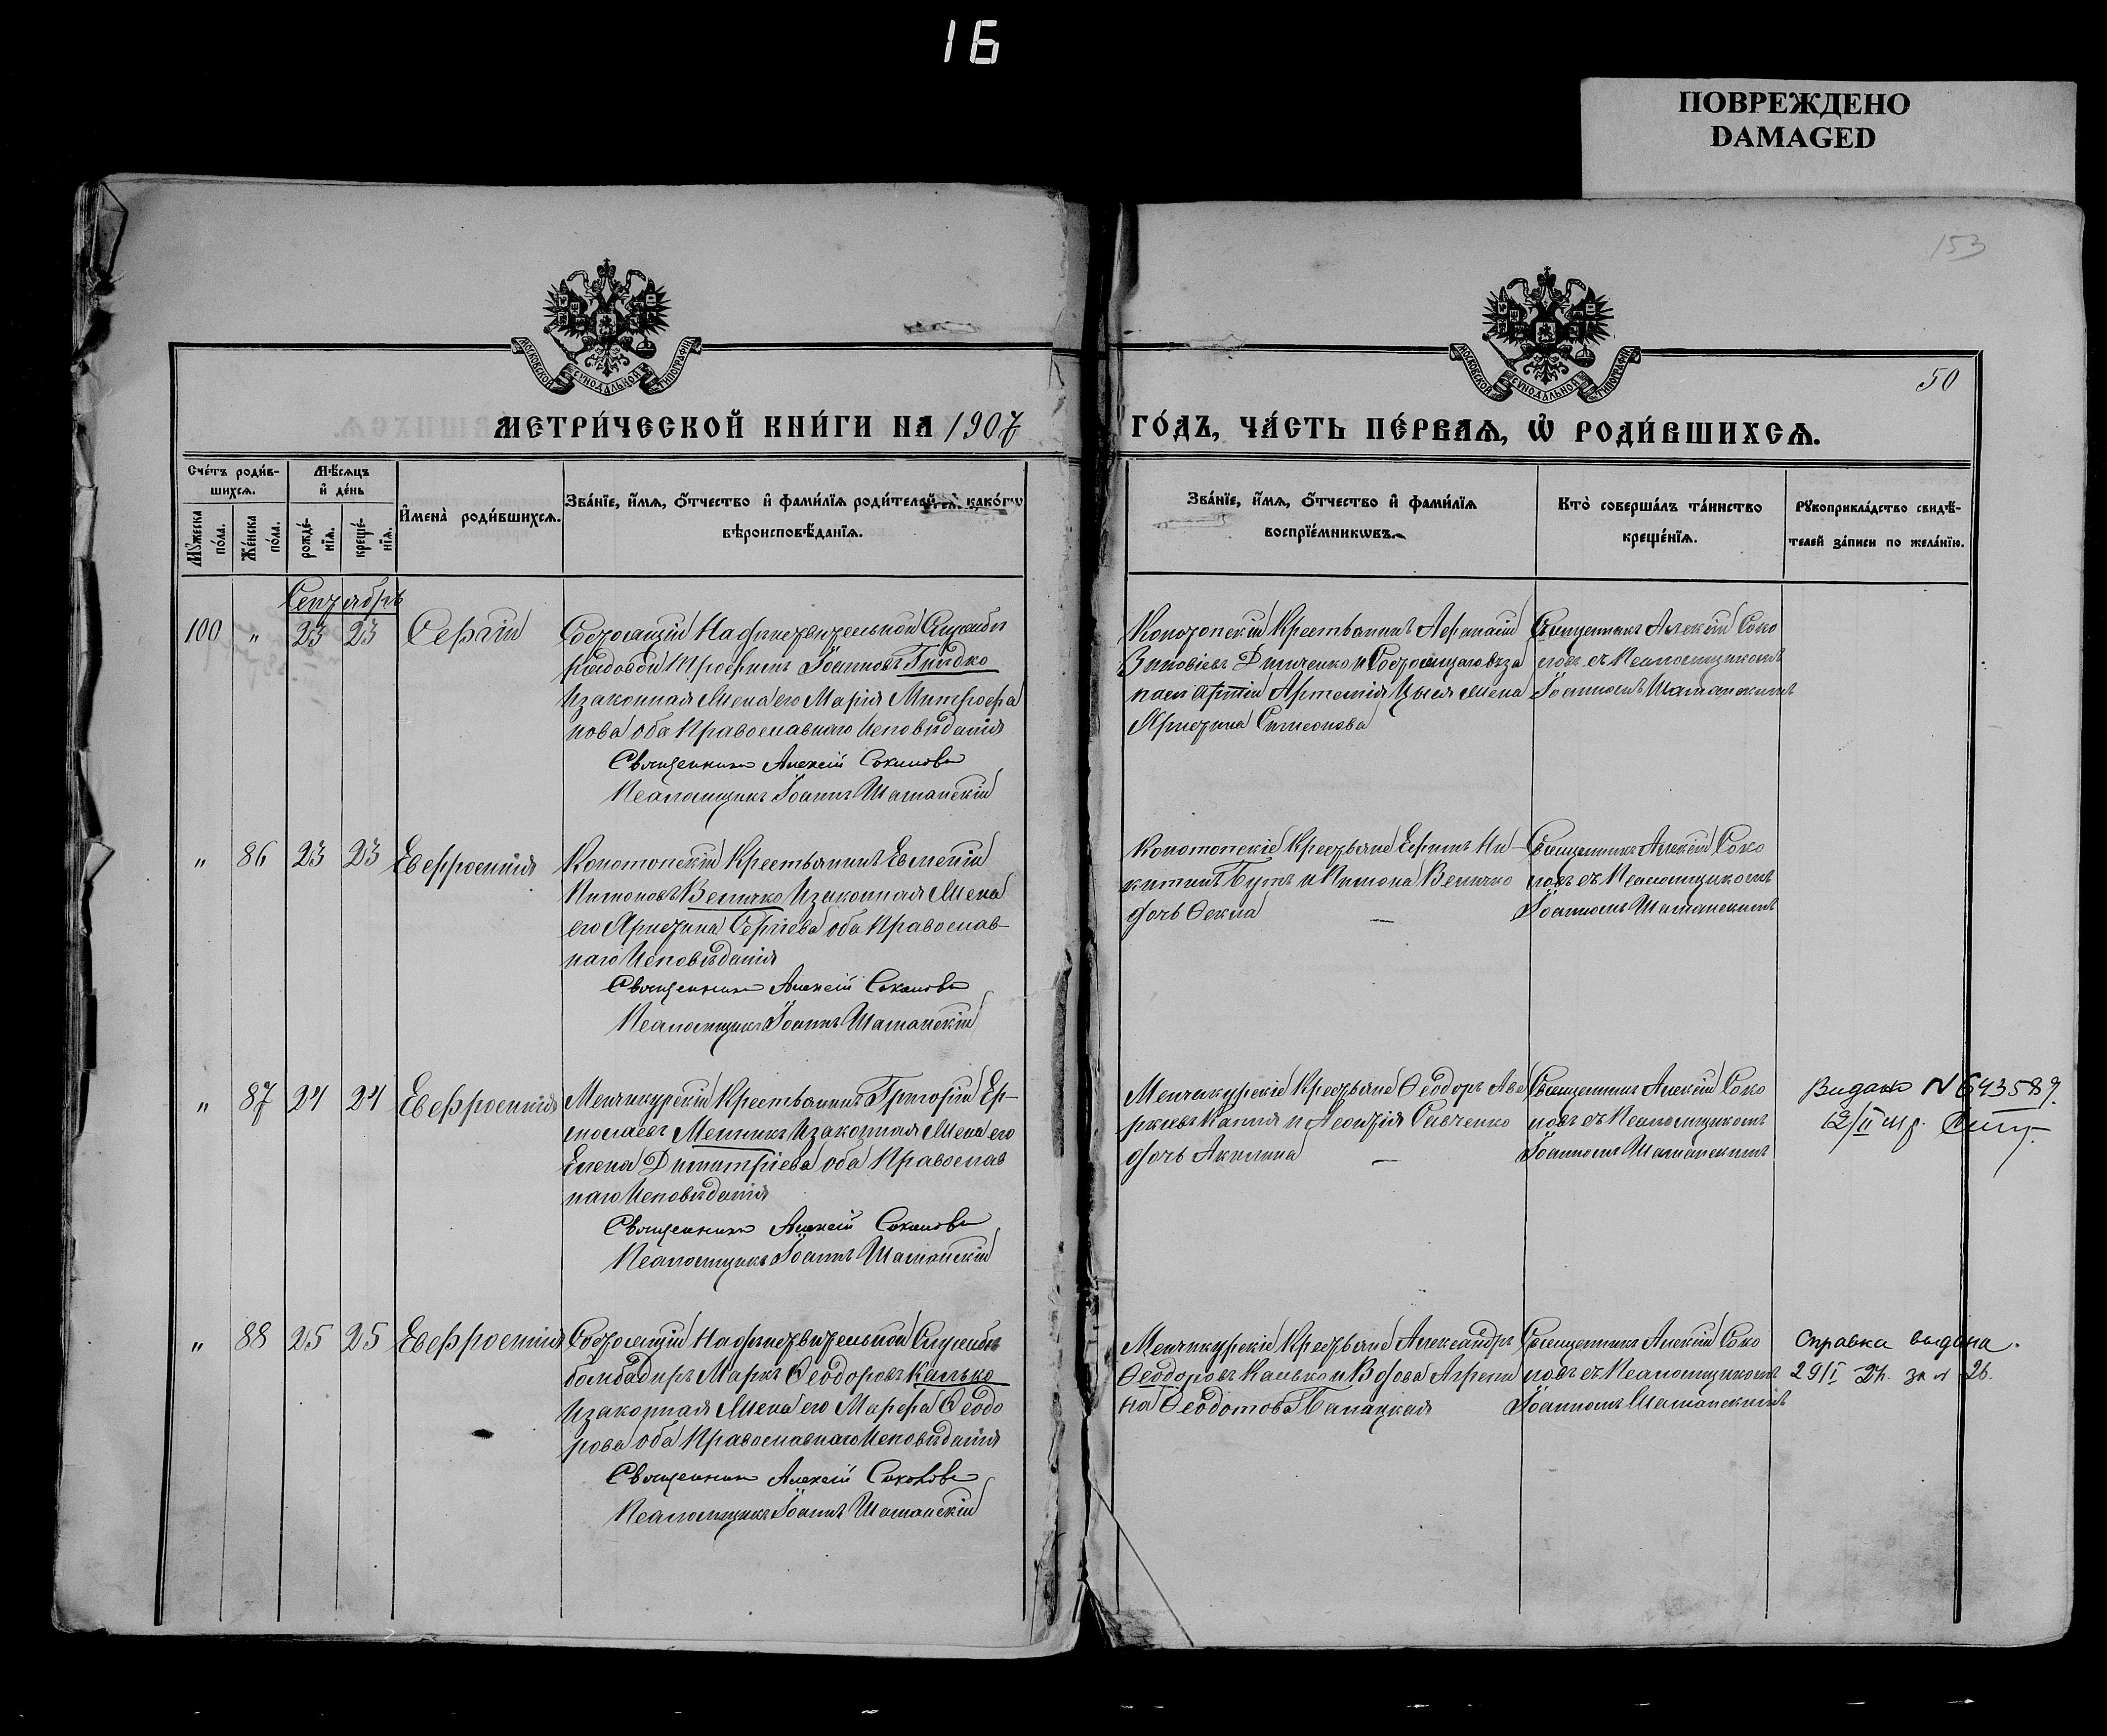 16
ПОВРЕЖДЕНО
DAMAGED
153
МОСКОВСКОЙ СѴНОДАЛЬНОЙ ТИПОГРАФІИ
МОСКОВСКОЙ СѴНОДАЛЬНОЙ ТИПОГРАФІИ
50
МЕТРИ́ЧЕСКОЙ КНИ́ГИ НА 1907
ГО́ДЪ, ЧА́СТЬ ПЕ́РВАѦ, Ѡ҆ РОДИ́ВШИХСѦ.
Сче́тъ роди́в-
шихсѧ.
Мѣ́сѧцъ
и҆ де́нь
Мꙋ́жеска по́ла.
Же́нска по́ла.
рожде́-нїѧ.
креще́-нїѧ.
И҆мена̀ роди́вшихсѧ.
Зва́нїе, и҆́мѧ, ѻ҆́тчество и҆ фами́лїѧ роди́телей, и҆ како́гѡ
вѣроисповѣ́данїѧ.
Зва́нїе, и҆́мѧ, ѻ҆́тчество и҆ фами́лїѧ
воспрїе́мникѡвъ.
Кто̀ соверша́лъ та́инство
креще́нїѧ.
Рꙋкоприкла́дство свидѣ́-
телей за́писи по жела́нїю.
Сентябрь
100 " 23 23 Сергій
Состоящій На дѣйствительной Службѣ
рядовой Трофимъ Іоанновъ Гнидко
И законная Жена его Марія Митрофа
нова оба Православнаго Исповѣданія
Священникъ Алексій Соколовъ
Псаломщикъ Іоаннъ Шаманскій
Конотопскій Крестьянинъ Афанасій
Зиновіевъ Димченко и Состоящаго въ за
пасѣ арміи Артемія Цыся жена
Христина Симеонова
Священникъ Алексій Соко
ловъ съ Псаломщикомъ
Іоанномъ Шаманскимъ
" 86 23 23 Евфросинія
Конотопскій Крестьянинъ Евменій
Пимоновъ Величко И законная Жена
его Христина Сергіева оба Православ-
наго Исповѣданія
Священникъ Алексій Соколовъ
Псаломщикъ Іоаннъ Шаманскій
Конотопскіе Крестьяне Ефимъ Ни-
китинъ Бутъ и Пимона Величко
дочь Ѳекла
Священникъ Алексій Соко
ловъ съ Псаломщикомъ
Іоанномъ Шаманскимъ
" 87 24 24 Евфросинія
Менчикурскій Крестьянинъ Григорій Ер-
молаевъ Мельникъ И законная Жена его
Елена Димитріева оба Православ
наго Исповѣданія
Священникъ Алексій Соколовъ
Псаломщикъ Іоаннъ Шаманскій
Менчикурскіе Крестьяне Ѳеодоръ Аве
ркіевъ и Леонтія Савченко
дочь Акилина
Священникъ Алексій Соко
ловъ съ Псаломщикомъ
Іоанномъ Шаманскимъ
Видано N 643589.
12/II
" 88 25 25 Евфросинія
Состоящій На дѣйствительной Службѣ
бомбадиръ Маркъ Ѳеодоровъ Калько
И законная Жена его Марфа Ѳеодо
рова оба Православнаго Исповѣданія
Священникъ Алексій Соколовъ
Псаломщикъ Іоаннъ Шаманскій
Менчикурскіе Крестьяне Александръ
Ѳеодоровъ Калько и Вдова Агрепи
на Ѳеодотова
Священникъ Алексій Соко
ловъ съ Псаломщикомъ
Іоанномъ Шаманскимъ
Справка выдана.
29/I 27. за N 26.